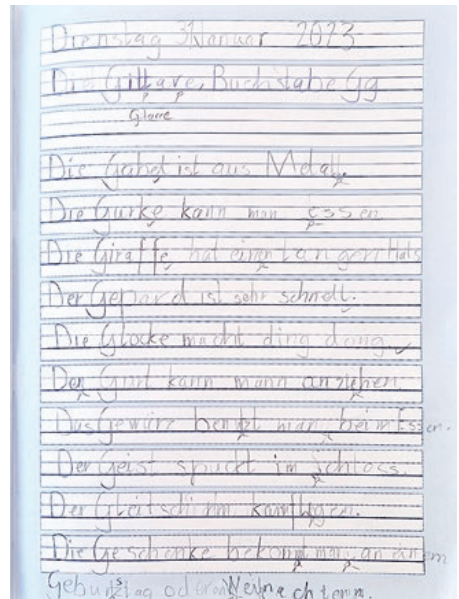 Dienstag 31 Januar 2023
Die Gittare, Buchstabe Gg
Die Gabel ist aus Metall.
Die Gurke kann man essen
Die Giraffe hat einen langen Hals
Der Gepard ist sehr schnell.
Die Glocke macht ding dong
Der Gürt kann mann anziehen
Das Gewürz benutzt man beim Essen.
Der Geist spuckt im Schloss.
Der Gleitschirm kann fligen.
Die Geschenke bekommt man an einem
Geburtstag oder an Weinachten.